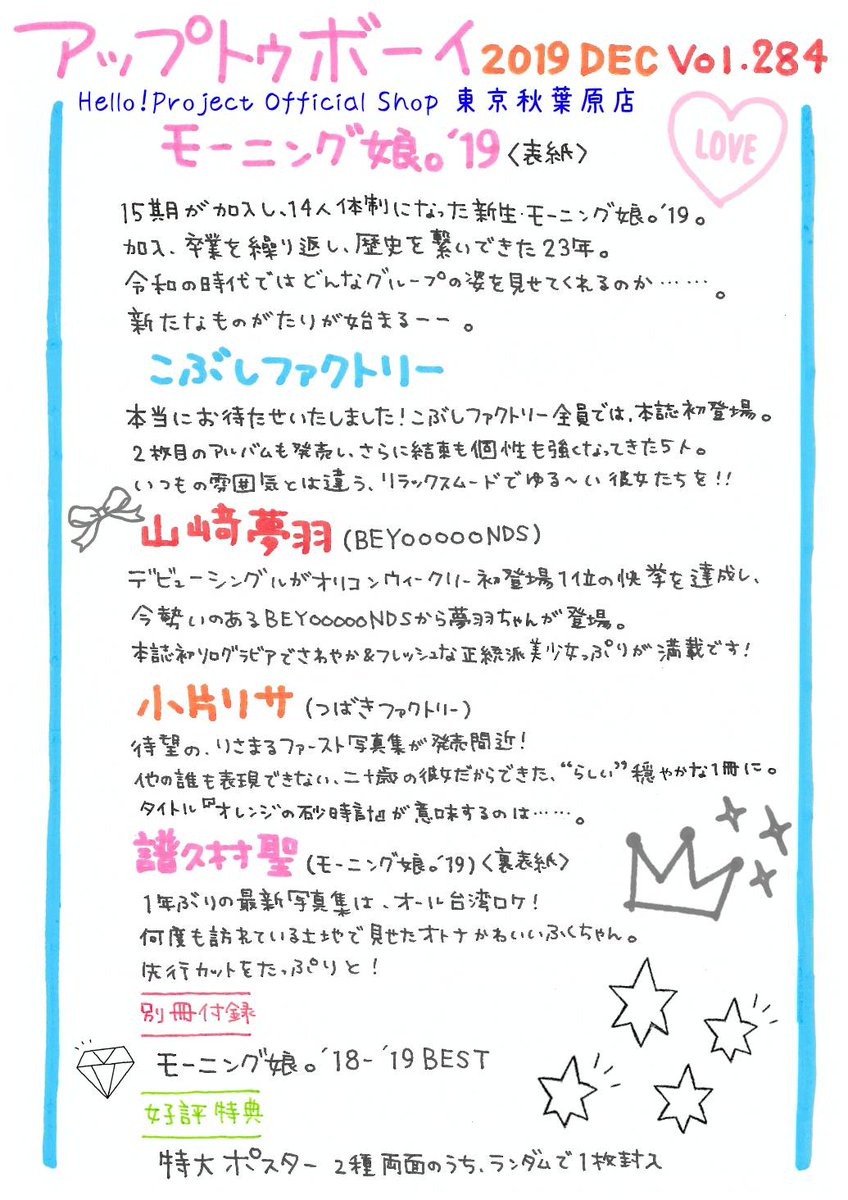 アップトゥボーイ 2019 DEC Vol.284
Hello!Project Official Shop 東京秋葉原店
モーニング娘。'19〈表紙〉
LOVE
15期が加入し、14人体制になった新生・モーニング娘。'19。
加入、卒業を繰り返し、歴史を繋いできた23年。
令和の時代ではどんなグループの姿を見せてくれるのか……。
新たなものがたりが始まるーー。
こぶしファクトリー
本当にお待たせいたしました!こぶしファクトリー全員では、本誌初登場。
2枚目のアルバムも発売し、さらに結束も個性も強くなってきた5人。
いつもの雰囲気とは違う、リラックスムードでゆる~い彼女たちを!!
山﨑夢羽(BEYOOOOONDS)
デビューシングルがオリコンウィークリー初登場1位の快挙を達成し、
今勢いのあるBEYOOOOONDSから夢羽ちゃんが登場。
本誌初ソログラビアでさわやか&フレッシュな正統派美少女っぷりが満載です!
小片リサ(つばきファクトリー)
待望の、りさまるファースト写真集が発売間近!
他の誰も表現できない、二十歳の彼女だからできた、“らしい”穏やかな1冊に。
タイトル『オレンジの砂時計』が意味するのは……。
譜久村聖(モーニング娘。'19)〈裏表紙〉
1年ぶりの最新写真集は、オール台湾ロケ!
何度も訪れている土地で見せたオトナかわいいふくちゃん。
先行カットをたっぷりと!
別冊付録
モーニング娘。'18-'19 BEST
好評特典
特大ポスター 2種両面のうち、ランダムで1枚封入